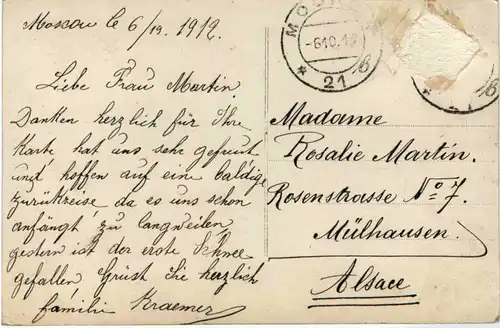 Moscou le 6/19. 1912.
Liebe Frau Martin.
Danken herzlich für Ihre
Karte hat uns sehr gefreut
und hoffen auf eine baldige
zurükreise da es uns schon
anfängt zu langweilen,
gestern ist der erste Schnee
gefallen Grüst Sie herzlich
familie Kraemer
-6.10.1
21
Madame
Rosalie Martin.
Rosenstrasse No 7.
Mülhausen.
Alsace